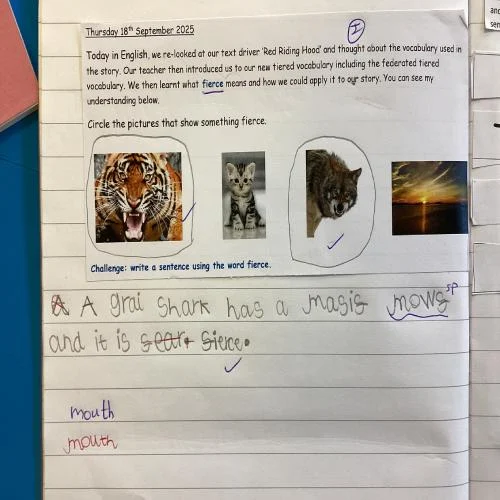 Thursday 18th September 2025
I
Today in English, we re-looked at our text driver 'Red Riding Hood' and thought about the vocabulary used in
the story. Our teacher then introduced us to our new tiered vocabulary including the federated tiered
vocabulary. We then learnt what fierce means and how we could apply it to our story. You can see my
understanding below.
Circle the pictures that show something fierce.
Challenge: write a sentence using the word fierce.
A A grai shark has a masis mows sp
and it is fierce.
mouth
mouth